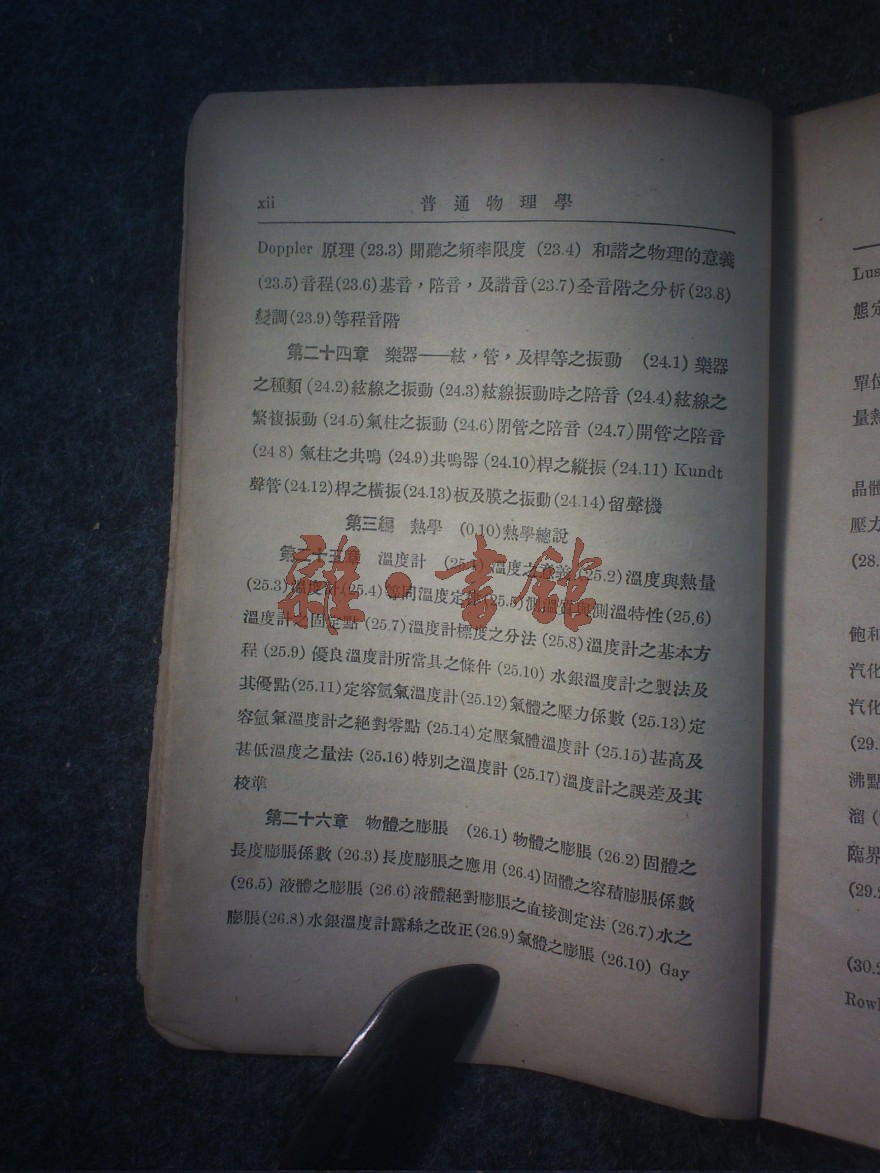 xii 普通物理學
Doppler 原理 (23.3) 聞聽之頻率限度 (23.4) 和諧之物理的意義
(23.5)音程(23.6)基音，陪音，及諧音(23.7)全音階之分析(23.8)
變調(23.9)等程音階
第二十四章 樂器——絃，管，及桿等之振動 (24.1) 樂器
之種類 (24.2)絃線之振動 (24.3)絃線振動時之陪音 (24.4)絃線之
繁複振動 (24.5)氣柱之振動 (24.6)閉管之陪音 (24.7)開管之陪音
(24 8) 氣柱之共鳴 (24.9)共鳴器 (24.10)桿之縱振 (24.11) Kundt
聲管(24.12)桿之橫振(24.13)板及膜之振動(24.14)留聲機
第三編 熱學 (0.10)熱學總說
第二十五章 溫度計 (25.1)溫度之意義(25.2)溫度與熱量
(25.3)溫度計(25.4)等同溫度定律(25.5)測溫質與測溫特性(25.6)
溫度計之固定點 (25.7)溫度計標度之分法 (25.8)溫度計之基本方
程 (25.9) 優良溫度計所當具之條件 (25.10) 水銀溫度計之製法及
其優點(25.11)定容氫氣溫度計(25.12)氣體之壓力係數 (25.13)定
容氫氣溫度計之絕對零點 (25.14)定壓氣體溫度計 (25.15)甚高及
甚低溫度之量法 (25.16)特別之溫度計 (25.17)溫度計之誤差及其
校準
第二十六章 物體之膨脹 (26.1) 物體之膨脹 (26.2)固體之
長度膨脹係數 (26.3)長度膨脹之應用 (26.4)固體之容積膨脹係數
(26.5) 液體之膨脹 (26.6)液體絕對膨脹之直接測定法 (26.7)水之
膨脹(26.8)水銀溫度計露絲之改正(26.9)氣體之膨脹 (26.10) Gay
雜·書館
Lus
熊定
單位
量熱
晶體
壓力
(28.
飽和
汽化
汽化
(29.
沸點
溜 (
臨界
(29.2
(30.2
Rowl